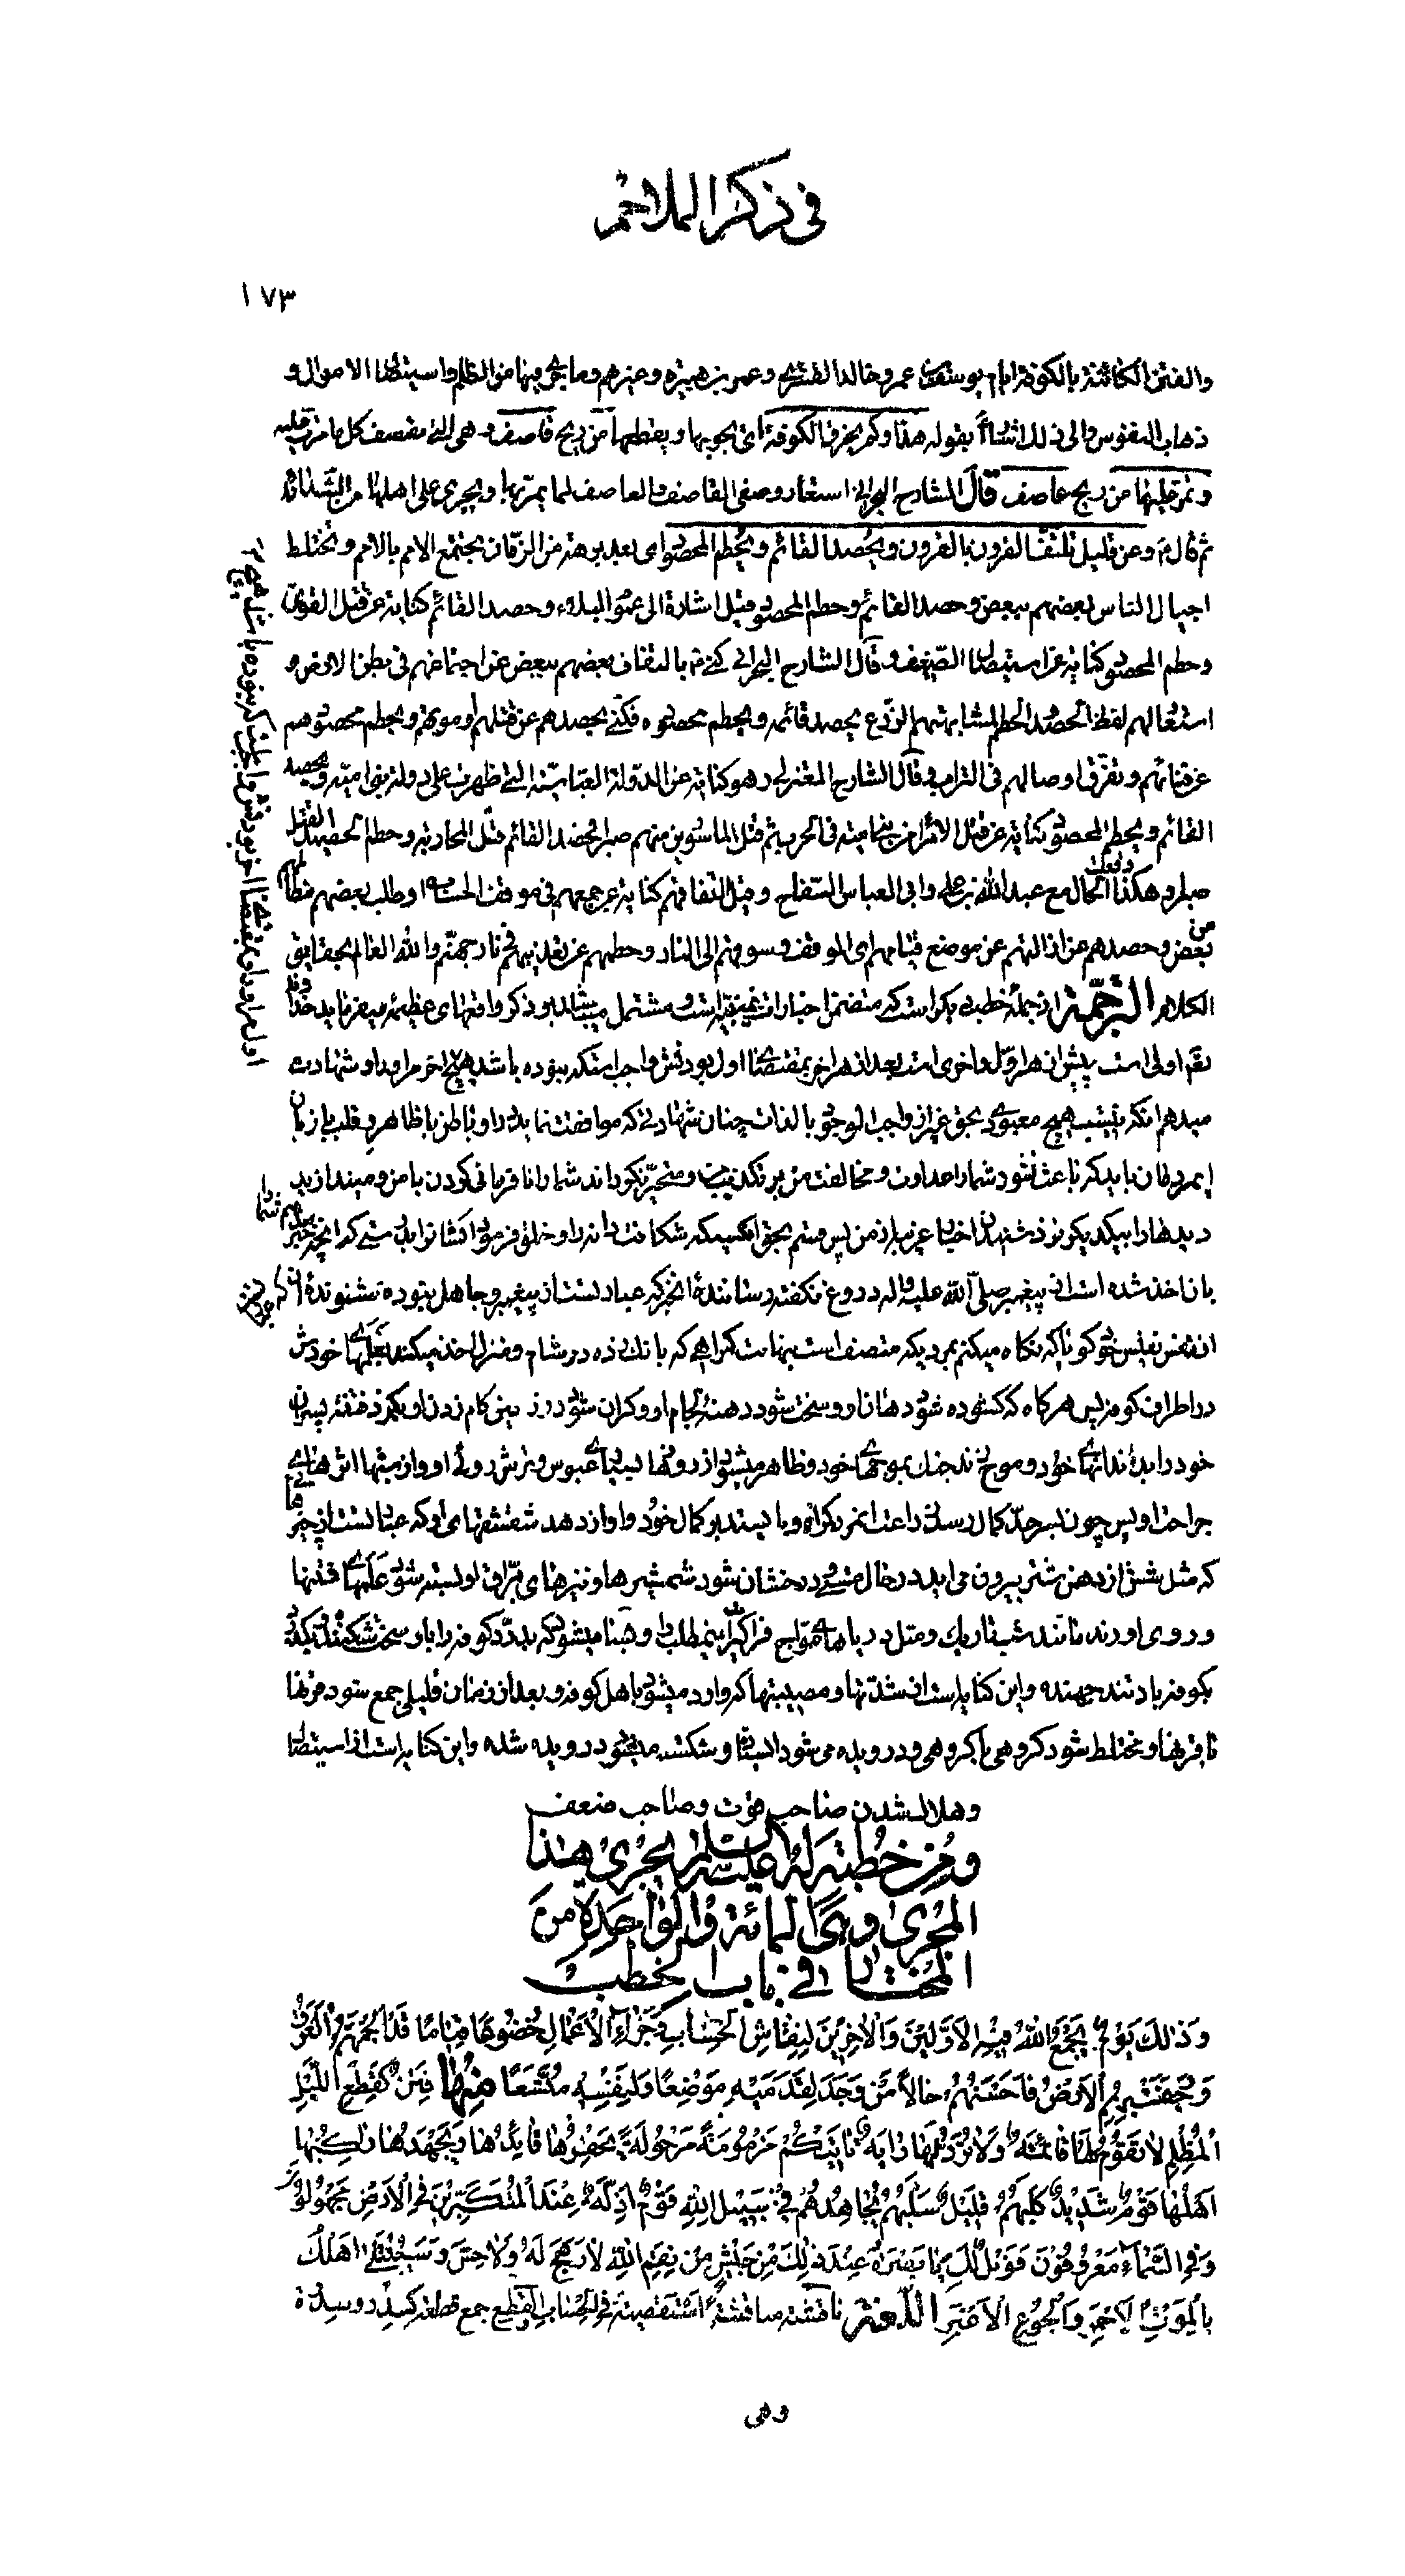 فی ذکر الملاحم
۱۷۳
والفتن الکائنة بالکوفة ایام یوسف بن عمرو خالد القسری وعمر بن هبیرة وغیرهم وما جری فیها من الظلم واستیصال الاموال و
ذهاب النفوس والی ذلک اشار بقوله هذا وکم یخرق الکوفة ای یجوبها ویقطعها من ریح قاصف وهی التی تقصف کل ما مرت علیه
وتمر علیها من ریح عاصف قال الشارح البحرانی استعار وصفی القاصف والعاصف لما یمر بها ویجری علی اهلها من الشدائد
ثم قال ع وعن قلیل تلتف القرون بالقرون ویحصد القائم ویحطم المحصود ای بعد برهة من الزمان یجتمع الامم بالامم ویختلط
اجیال الناس بعضهم ببعض وحصد القائم وحطم المحصود قیل اشارة الی عموم البلاء وحصد القائم کنایة عن قتل القوی
وحطم المحصود کنایة عن استیصال الضعیف وقال الشارح البحرانی کنی بالتفاف بعضهم ببعض عن اجتماعهم فی بطن الارض و
استعار لهم لفظ الحصد والحطم لمشابهتهم الزرع یحصد قائمه ویحطم محصوده فکنی بحصدهم عن قتلهم او موتهم وبحطم محصودهم
عن فنائهم وتفرق اوصالهم فی التراب وقال الشارح المعتزلی وهو کنایة عن الدولة العباسیة التی ظهرت علی دولة بنی امیه ویحصد
القائم ویحطم المحصود کنایة عن قتل الامراء من بنی امیة فی الحرب ثم قتل الماسورین منهم صبرا فحصد القائم قتل المحاربة وحطم الحصید القتل
صبرا وهکذا وقعت الحال مع عبد الله بن علی وابی العباس السفاح وقیل التفافهم کنایة عن جمعهم فی موقف الحساب او طلب بعضهم مظالمهم
من بعض وحصدهم عن ازالتهم عن موضع قیامهم ای الموقف وسوقهم الی النار وحطمهم عن تعذیبهم فی نار جهنم والله العالم بحقایق
الکلام الترجمة از جملهٔ خطب دیگر است که متضمن اخبارات غیبیه است و مشتمل میباشد بر ذکر واقعهای عظیمه میفرماید خداوند
تعالی اولی است پیش از هر اول و اخری است بعد از هر اخر بمقتضای اول بودنش واجب است که نبوده باشد هیچ اخر مر او را و شهادت
میدهم انکه نیست هیچ معبودی بحق غیر از واجب الوجود بالذات چنان شهادتی که موافقت نماید در او باطن با ظاهر و قلب با زبان
ای مردمان باید که باعث نشود شما را عداوت و مخالفت من بر تکذیب و متحیر نگرداند شما را نافرمانی کردن با من و میندازید
دیدها را بیکدیگر نزد شنیدن اخبار غیبیه از من پس قسم بحق انکسیکه شکافت دانه را و خلق فرمود انسان را بدرستی که انچه خبر میدهم شما را
بان اخذ شده است از پیغمبر صلی الله علیه و اله دروغ نگفته رسانندهٔ انخبر که عبارتست از پیغمبر و جاهل نبوده شنوندهٔ ان که عبارتست
از نفس نفیس خود گویا که نگاه میکنم بمردیکه متصف است بنهایت گمراهی که بانک زده در شام و منزل اخذ میکند بعلمهای خودش
در اطراف کوفه پس هر گاه که گشوده شود دهان او و سخت شود دهنهٔ لجام او و گران شود در زمین گام زدن او بگزد فتنه پسران
خود را بدندانهای خود و موج زند جنک بموجهای خود و ظاهر میشود از روزها بسیاری عبوس و ترش روئی او و از شبها اثرهای
جراحت او پس چون برسد بحد کمال رسیدن زراعت انمرد گمراه و بایستد بر کمال خود و اواز دهد شقشقهای او که عبارتست از چیزها
که مثل شش از دهن شتر بیرون می اید در حال مستی و درخشان شود شمشیرها و نیزهای براق او بسته شود علمهای فتنها
و روی اورند مانند شب تاریک و مثل دریاهای مواج فراگیر این مطلب را و چنان میشود که بدرد کوفه را باد سخت شکننده و بگذرد
بکوفه باد تند جهنده و این کنایه است از شدتها و مصیبتها که وارد میشود باهل کوفه و بعد از زمان قلیلی جمع شود قرنها
با قرنها و مختلط شود گروهی با گروهی و درویده می شود ایستاده و شکسته میشود درویده شده و این کنایه است از استیصال
و هلاک شدن صاحب قوت و صاحب ضعف
ومن خطبة له علیه السلام یجری هذا
المجری وهی المائة والواحدة من
المختار فی باب الخطب
وَذٰلِکَ یَوْمٌ یَجْمَعُ اللهُ فِیْهِ الْاَوَّلِیْنَ وَالْاٰخِرِیْنَ لِنِقَاشِ الْحِسَابِ وَجَزَاءِ الْاَعْمَالِ خُضُوْعًا قِیَامًا قَدْ اَلْجَمَهُمُ الْعَرَقُ
وَرَجَفَتْ بِهِمُ الْاَرْضُ فَاَحْسَنُهُمْ حَالًا مَنْ وَجَدَ لِقَدَمَیْهِ مَوْضِعًا وَلِنَفْسِهِ مُتَّسَعًا مِنْهَا فِتَنٌ کَقِطَعِ اللَّیْلِ
الْمُظْلِمِ لَا تَقُوْمُ لَهَا قَائِمَةٌ وَلَا تُرَدُّ لَهَا رَایَةٌ تَاْتِیْکُمْ مَزْمُوْمَةً مَرْحُوْلَةً یَحْفِزُهَا قَائِدُهَا وَیَجْهَدُهَا رَاکِبُهَا
اَهْلُهَا قَوْمٌ شَدِیْدٌ کَلَبُهُمْ قَلِیْلٌ سَلَبُهُمْ یُجَاهِدُهُمْ فِیْ سَبِیْلِ اللهِ قَوْمٌ اَذِلَّةٌ عِنْدَ الْمُتَکَبِّرِیْنَ فِی الْاَرْضِ مَجْهُوْلُوْنَ
وَفِی السَّمَاءِ مَعْرُوْفُوْنَ فَوَیْلٌ لَکِ یَا بَصْرَةُ عِنْدَ ذٰلِکَ مِنْ جَیْشٍ مِنْ نِقَمِ اللهِ لَا رَهَجَ لَهُ وَلَا حِسَّ وَسَیُبْتَلٰی اَهْلُکِ
بِالْمَوْتِ الْاَحْمَرِ وَالْجُوْعِ الْاَغْبَرِ اللغة ناقشته مناقشة استقصیته فی الحساب القطع جمع قطعة کسدر وسدرة
وهی